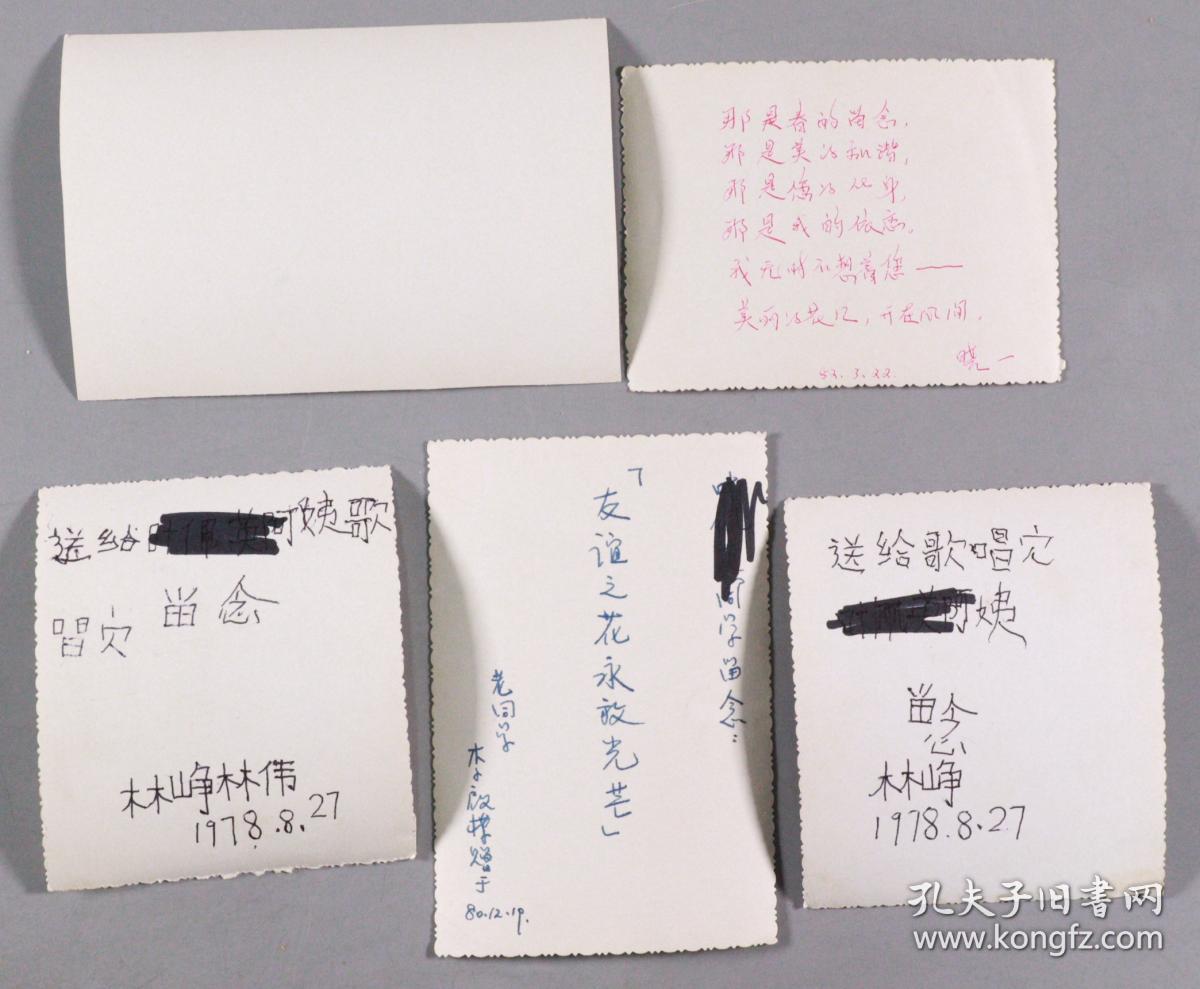 那是春的留念，
那是美的和谐，
那是您的化身，
那是我的依恋。
我无时不想着您——
美丽的花儿，开在心间。
晓一
83.3.22.
送给 阿姨歌
唱完 留念
林峥林伟
1978.8.27
同学留念：
「友谊之花永放光芒」
老同学
赠于
80.12.19.
送给歌唱完
阿姨
留念
林峥
1978.8.27
孔夫子旧书网
www.kongfz.com